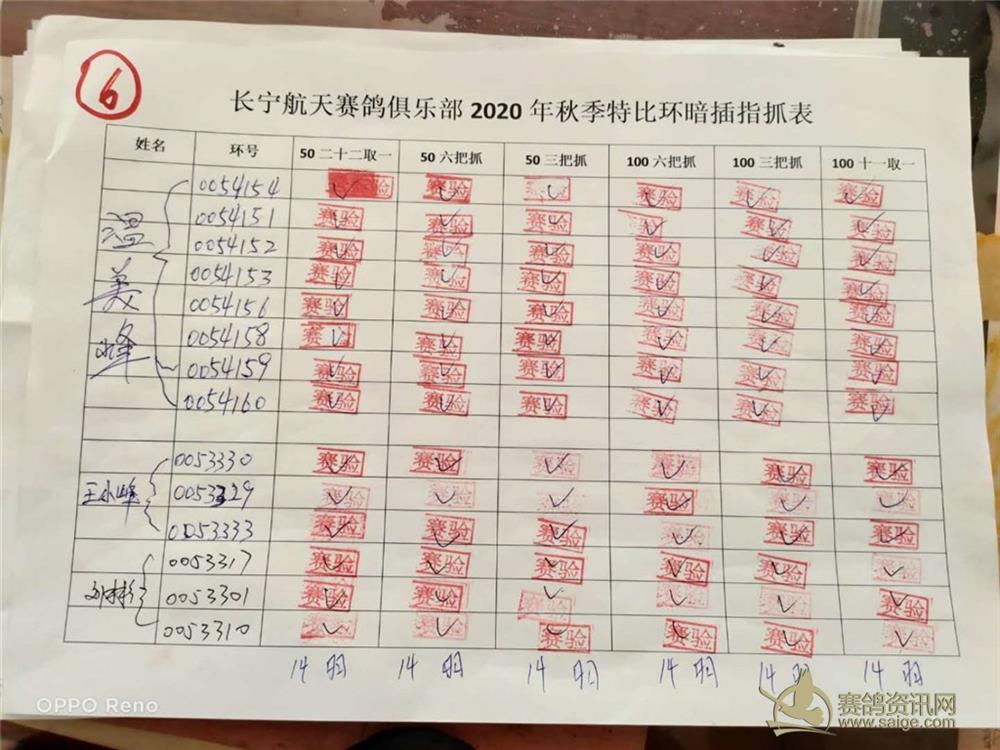 6
长宁航天赛鸽俱乐部 2020 年秋季特比环暗插指抓表
姓名 环号 50 二十二取一 50 六把抓 50 三把抓 100 六把抓 100 三把抓 100 十一取一
温美峰
0054154 赛验 赛验 赛验 赛验 赛验
0054151 赛验 赛验 赛验 赛验 赛验 赛验
0054152 赛验 赛验 赛验 赛验 赛验 赛验
0054153 赛验 赛验 赛验 赛验 赛验 赛验
0054156 赛验 赛验 赛验 赛验 赛验 赛验
0054158 赛验 赛验 赛验 赛验 赛验 赛验
0054159 赛验 赛验 赛验 赛验 赛验 赛验
0054160 赛验 赛验 赛验 赛验 赛验 赛验
王小峰
0053330 赛验 赛验 赛验 赛验 赛验 赛验
0053329 赛验 赛验 赛验 赛验 赛验 赛验
0053333 赛验 赛验 赛验 赛验 赛验 赛验
0053317 赛验 赛验 赛验 赛验 赛验 赛验
0053301 赛验 赛验 赛验 赛验 赛验 赛验
0053310 赛验 赛验 赛验 赛验 赛验 赛验
14 羽 14 羽 14 羽 14 羽 14 羽 14 羽
OPPO Reno
赛鸽资讯网
www.saige.com